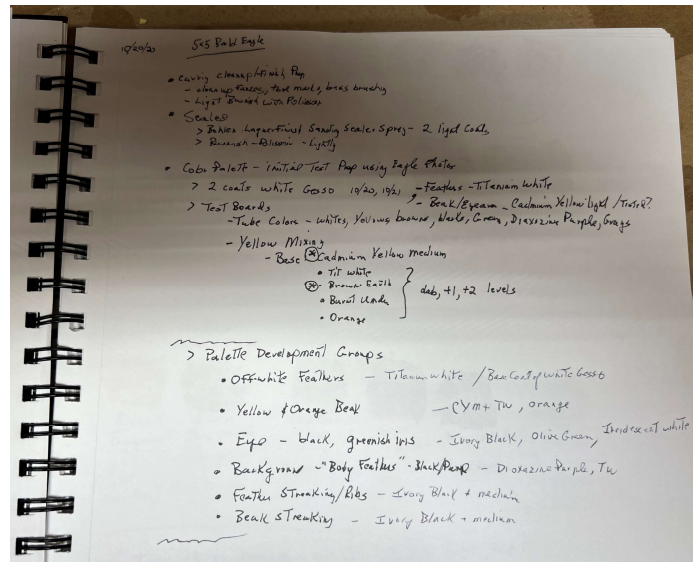 10/20/20 5x5 Bald Eagle
• Carving cleanup/Finish Prep
- cleanup fuzzies, tool marks, brass brushing
- Light Burnish with Polisher
• Sealer
> Behlen Laquer Finish Sanding Sealer Spray - 2 light Coats
> Burnish - - Lightly
• Color Palette - initial Test Prop using Eagle Photos
> 2 coats white Gesso 10/20, 10/21 - Feathers - Titanium White
- Beak/ - Cadmium Yellow light / ?
> Test Boards
- Tube Colors - whites, Yellows, browns, blacks, Green, Dioxozine Purple, Grays
- Yellow Mixing
- Base Cadmium Yellow medium
• Tit white
• Brown Earth
• Burnt Umber
• Orange
dab, +1, +2 levels
> Palette Development Groups
• Offwhite Feathers - Titanium white / Base Coat of white Gesso
• Yellow & Orange Beak - CYM + TW, orange
• Eye - black, greenish iris - Ivory Black, Olive Green, Iridescent white
• Background - "Body Feathers" - Black/Purp - Dioxazine Purple, TW
• Feather Streaking/Ribs - Ivory Black + medium
• Beak Streaking - Ivory Black + medium